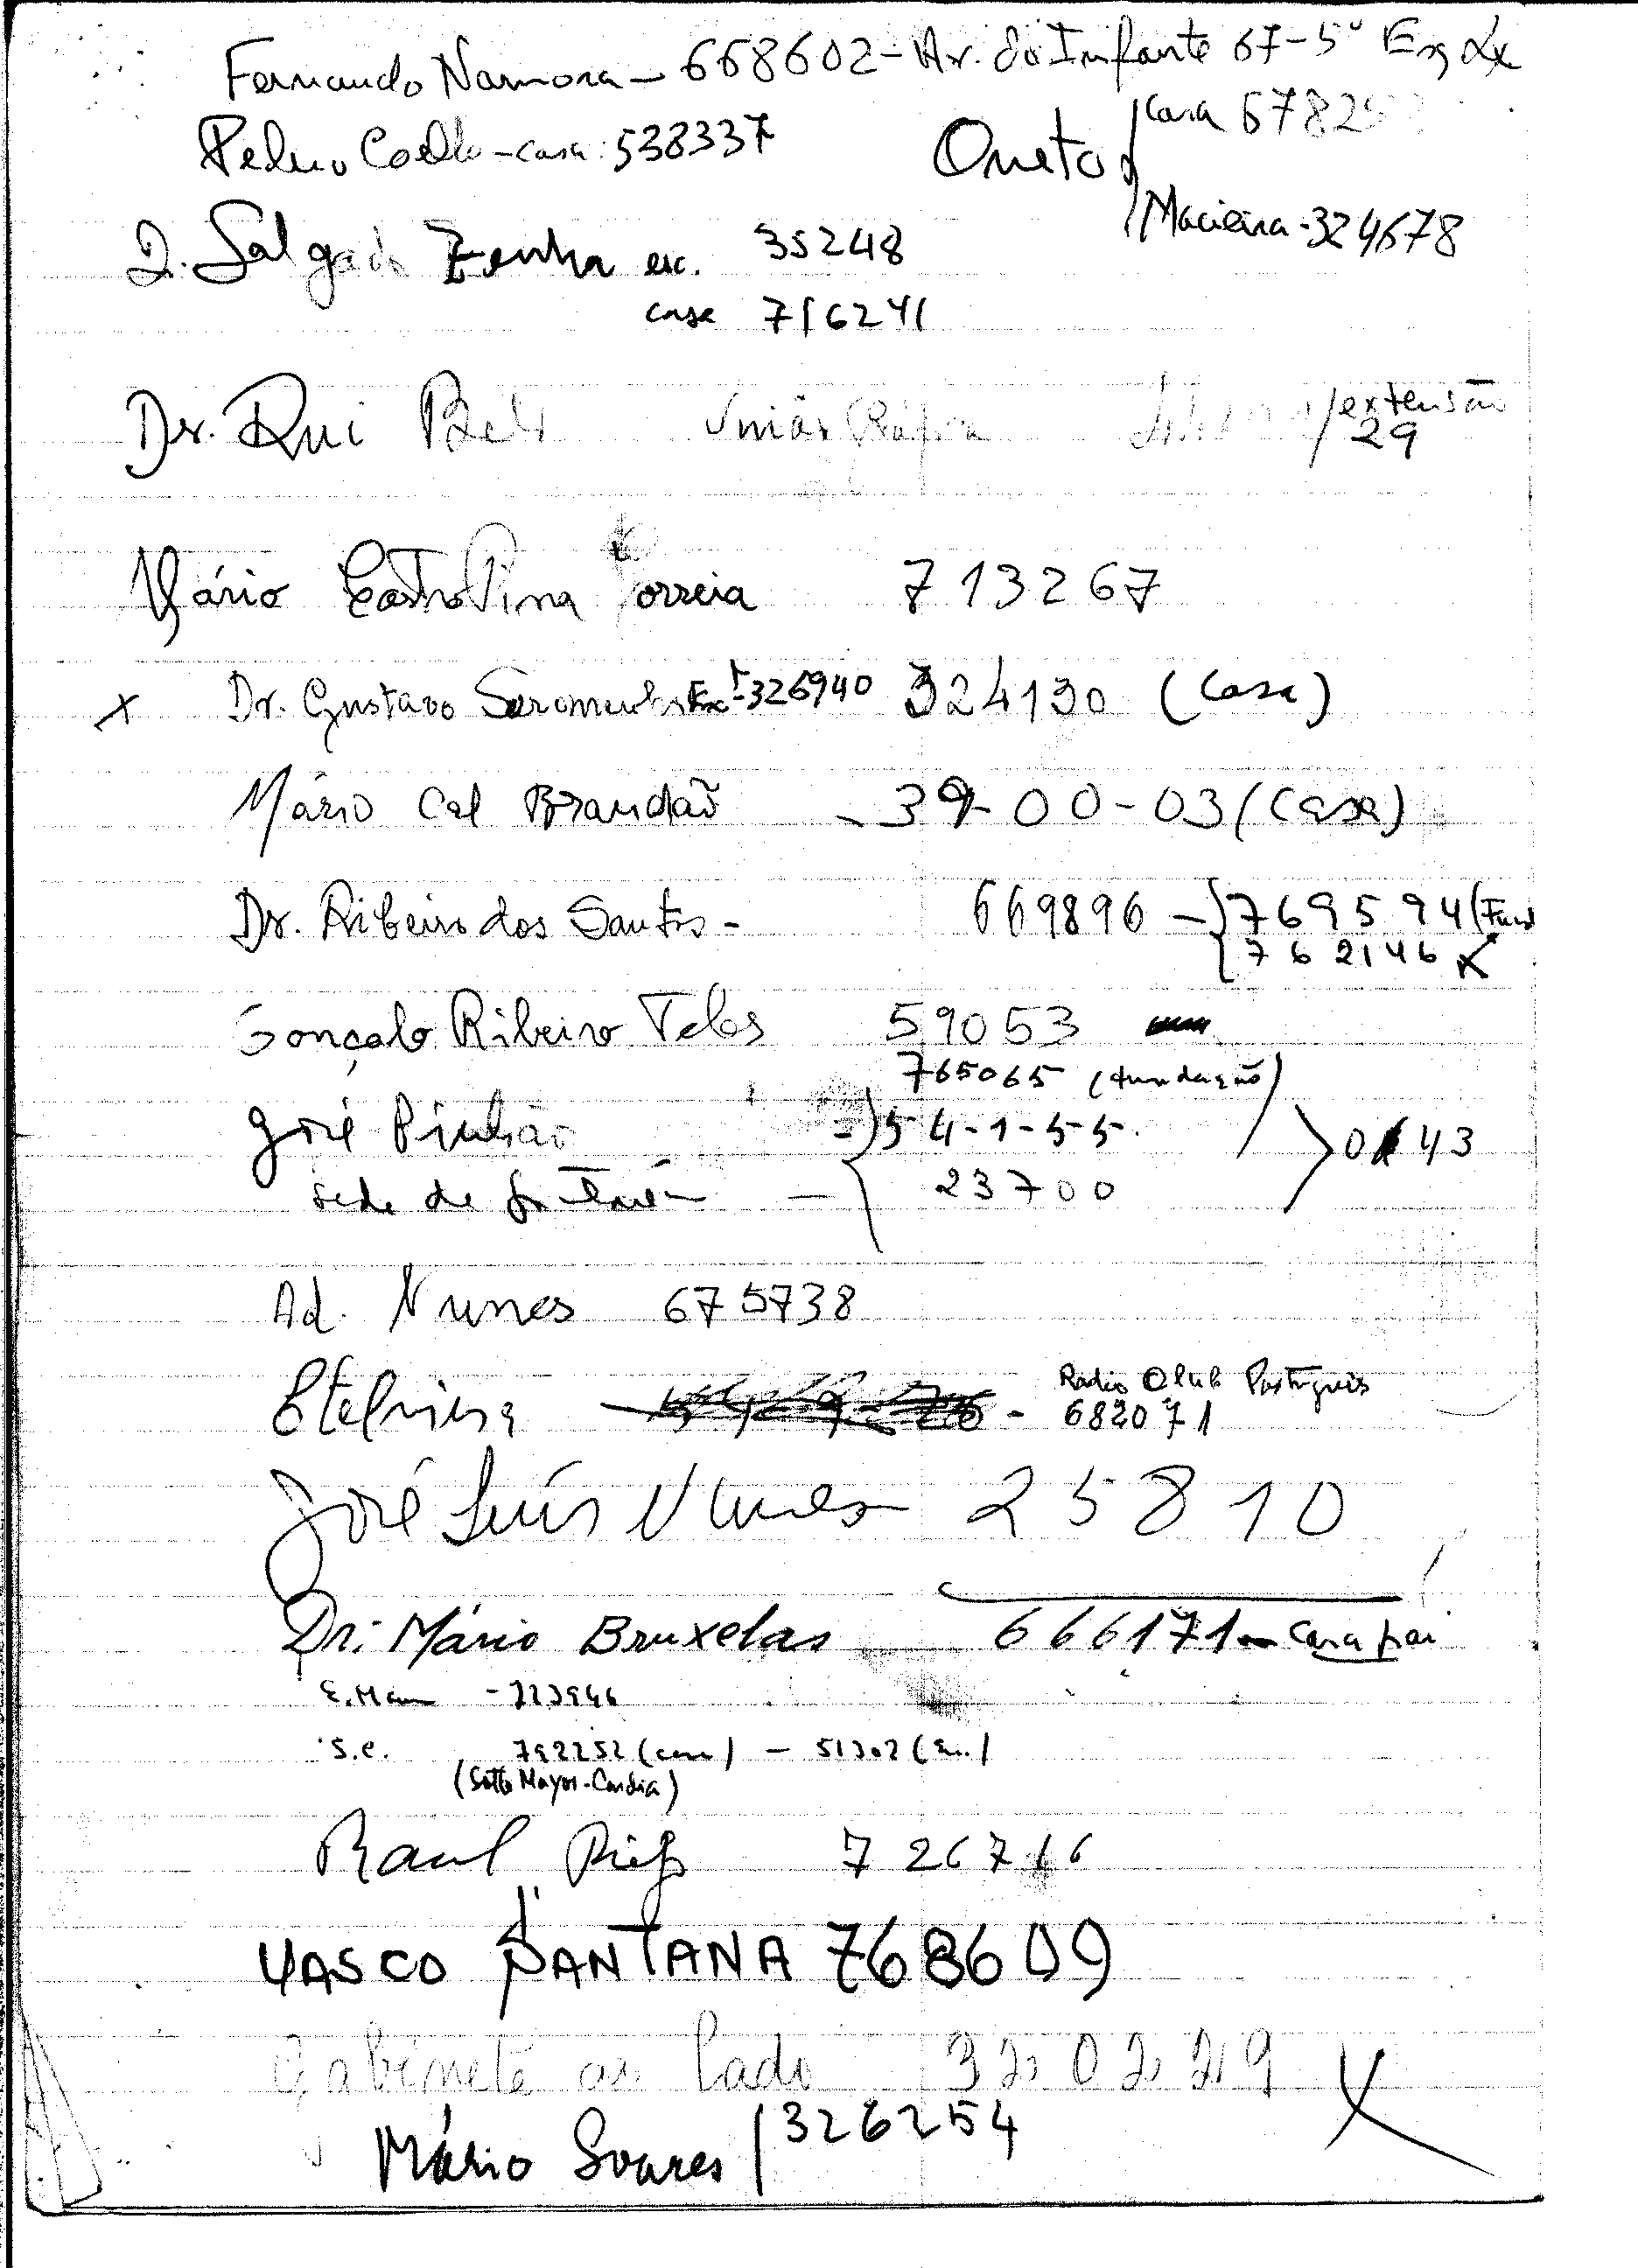 Fernando Namora - 668602 - Av. do Infante 67-5º Esq Lx
Pedro Coelho - casa: 538337
Oneto { casa 6782
Macieira - 324678
Salgado Zenha esc. 35248
casa 716241
Dr. Rui União Gráfica /extensão 29
Mário Castro Pina Correia 713267
x Dr. Gustavo Soromenho Esc - 326940 324190 (Casa)
Mário Cal Brandão - 39-00-03 (Casa)
Dr. Ribeiro dos Santos - 669896 - { 769594
762146 x
Gonçalo Ribeiro Teles 59053
765065 (fundação)
José Pinhão - ) 54-1-55
sede de - { 23700 > 043
Ad. Nunes 675738
Etelvina - Radio Club Português
682071
José Luís Nunes 25810
Dr. Mário Bruxelas 666171 - casa pai
S.C. 792252 (casa) - 51302
(Sotto Mayor-Cardia)
Raul Rêgo
VASCO SANTANA 768609
Gabinete ao lado 320229
Mário Soares / 326254